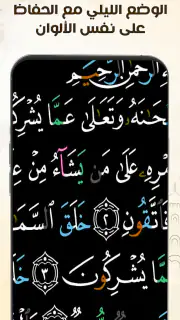 الوضع الليلي مع الحفاظ
على نفس الألوان
ٱلرَّحْمَٰنِ ٱلرَّحِيمِ
حَٰنَهُۥ وَتَعَٰلَىٰ عَمَّا يُشْرِكُ
رِهِۦ عَلَىٰ مَن يَشَآءُ مِنْ عِ
فَٱتَّقُونِ ٢ خَلَقَ ٱلسَّمَٰ
مَّا يُشْرِكُونَ ٣ خَ